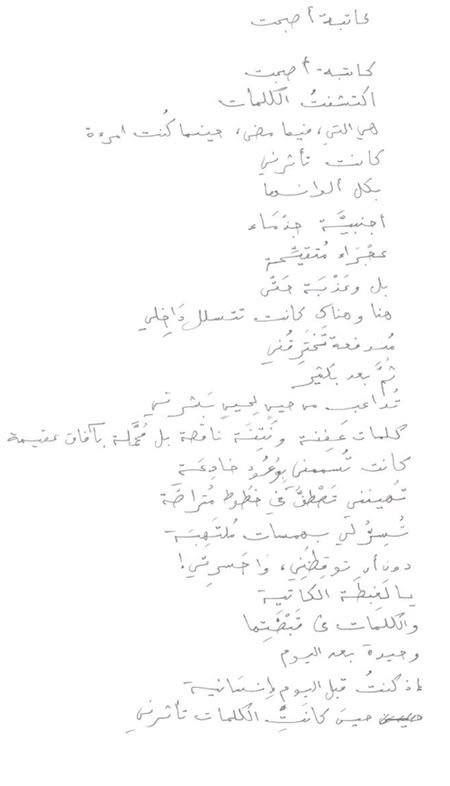 كاتبة أصبحت
كاتبة أصبحت
اكتشفتُ الكلمات
هي التي، فيما مضى، حينما كُنت امرءة
كانت تأثرني
بكل ألوانها
أجنبيَّة جذْمَاء
عجْزاء مُتقيِّحة
بل وعَذْبَة حَتَّى
هنا وهناك كانت تتسلل دَاخِلي
مُندفعة تَخْتَرِقُني
ثُمَّ بعد بكثير
تُداعب من حينٍ لحينٍ بَشرتي
كلمات عَفِنة ونَتِنَة ناقصة بل مُحمَّلة بآفات عقيمة
كانت تُسممني بِوُعُودٍ خادِعَة
تُهينني تَصْطَفُّ في خطُوط مُتراصَّة
تُسِرُّ لي بهمسات مُلتَهِبَة
دون أن توقِظني، وَاحَسرتي!
يا لَغِبطَة الكاتبة
والكلمات في قَبْضَتِها
وحيدة بعد اليوم
إذ كنتُ قبل اليوم إنسَانية
حينَ كانَتِ الكلمات تأثرني